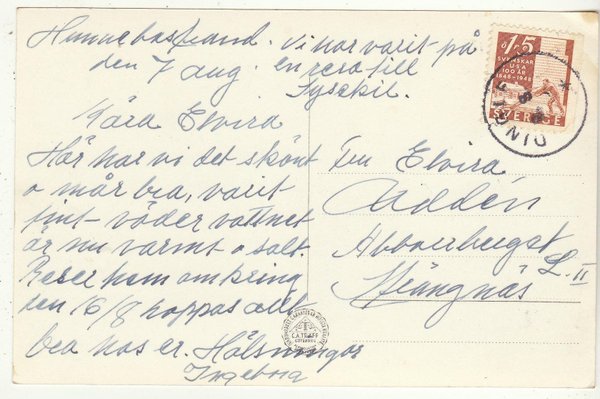 Hunnebostrand. Vi har varit på
den 7 aug. en resa till
Lysekil.
Kära Elvira
Här har vi det skönt
o mår bra, varit
fint väder vattnet
är nu varmt o salt.
Reser hem omkring
den 16/8 hoppas allt
bra hos er. Hälsningar
Ingeborg
Fru Elvira
Addén
L. II
Strängnäs
ö 15
SVENSKAR
I USA
100 ÅR
1848-1948
SVERIGE
DINGLE
L.A. TRÄFF